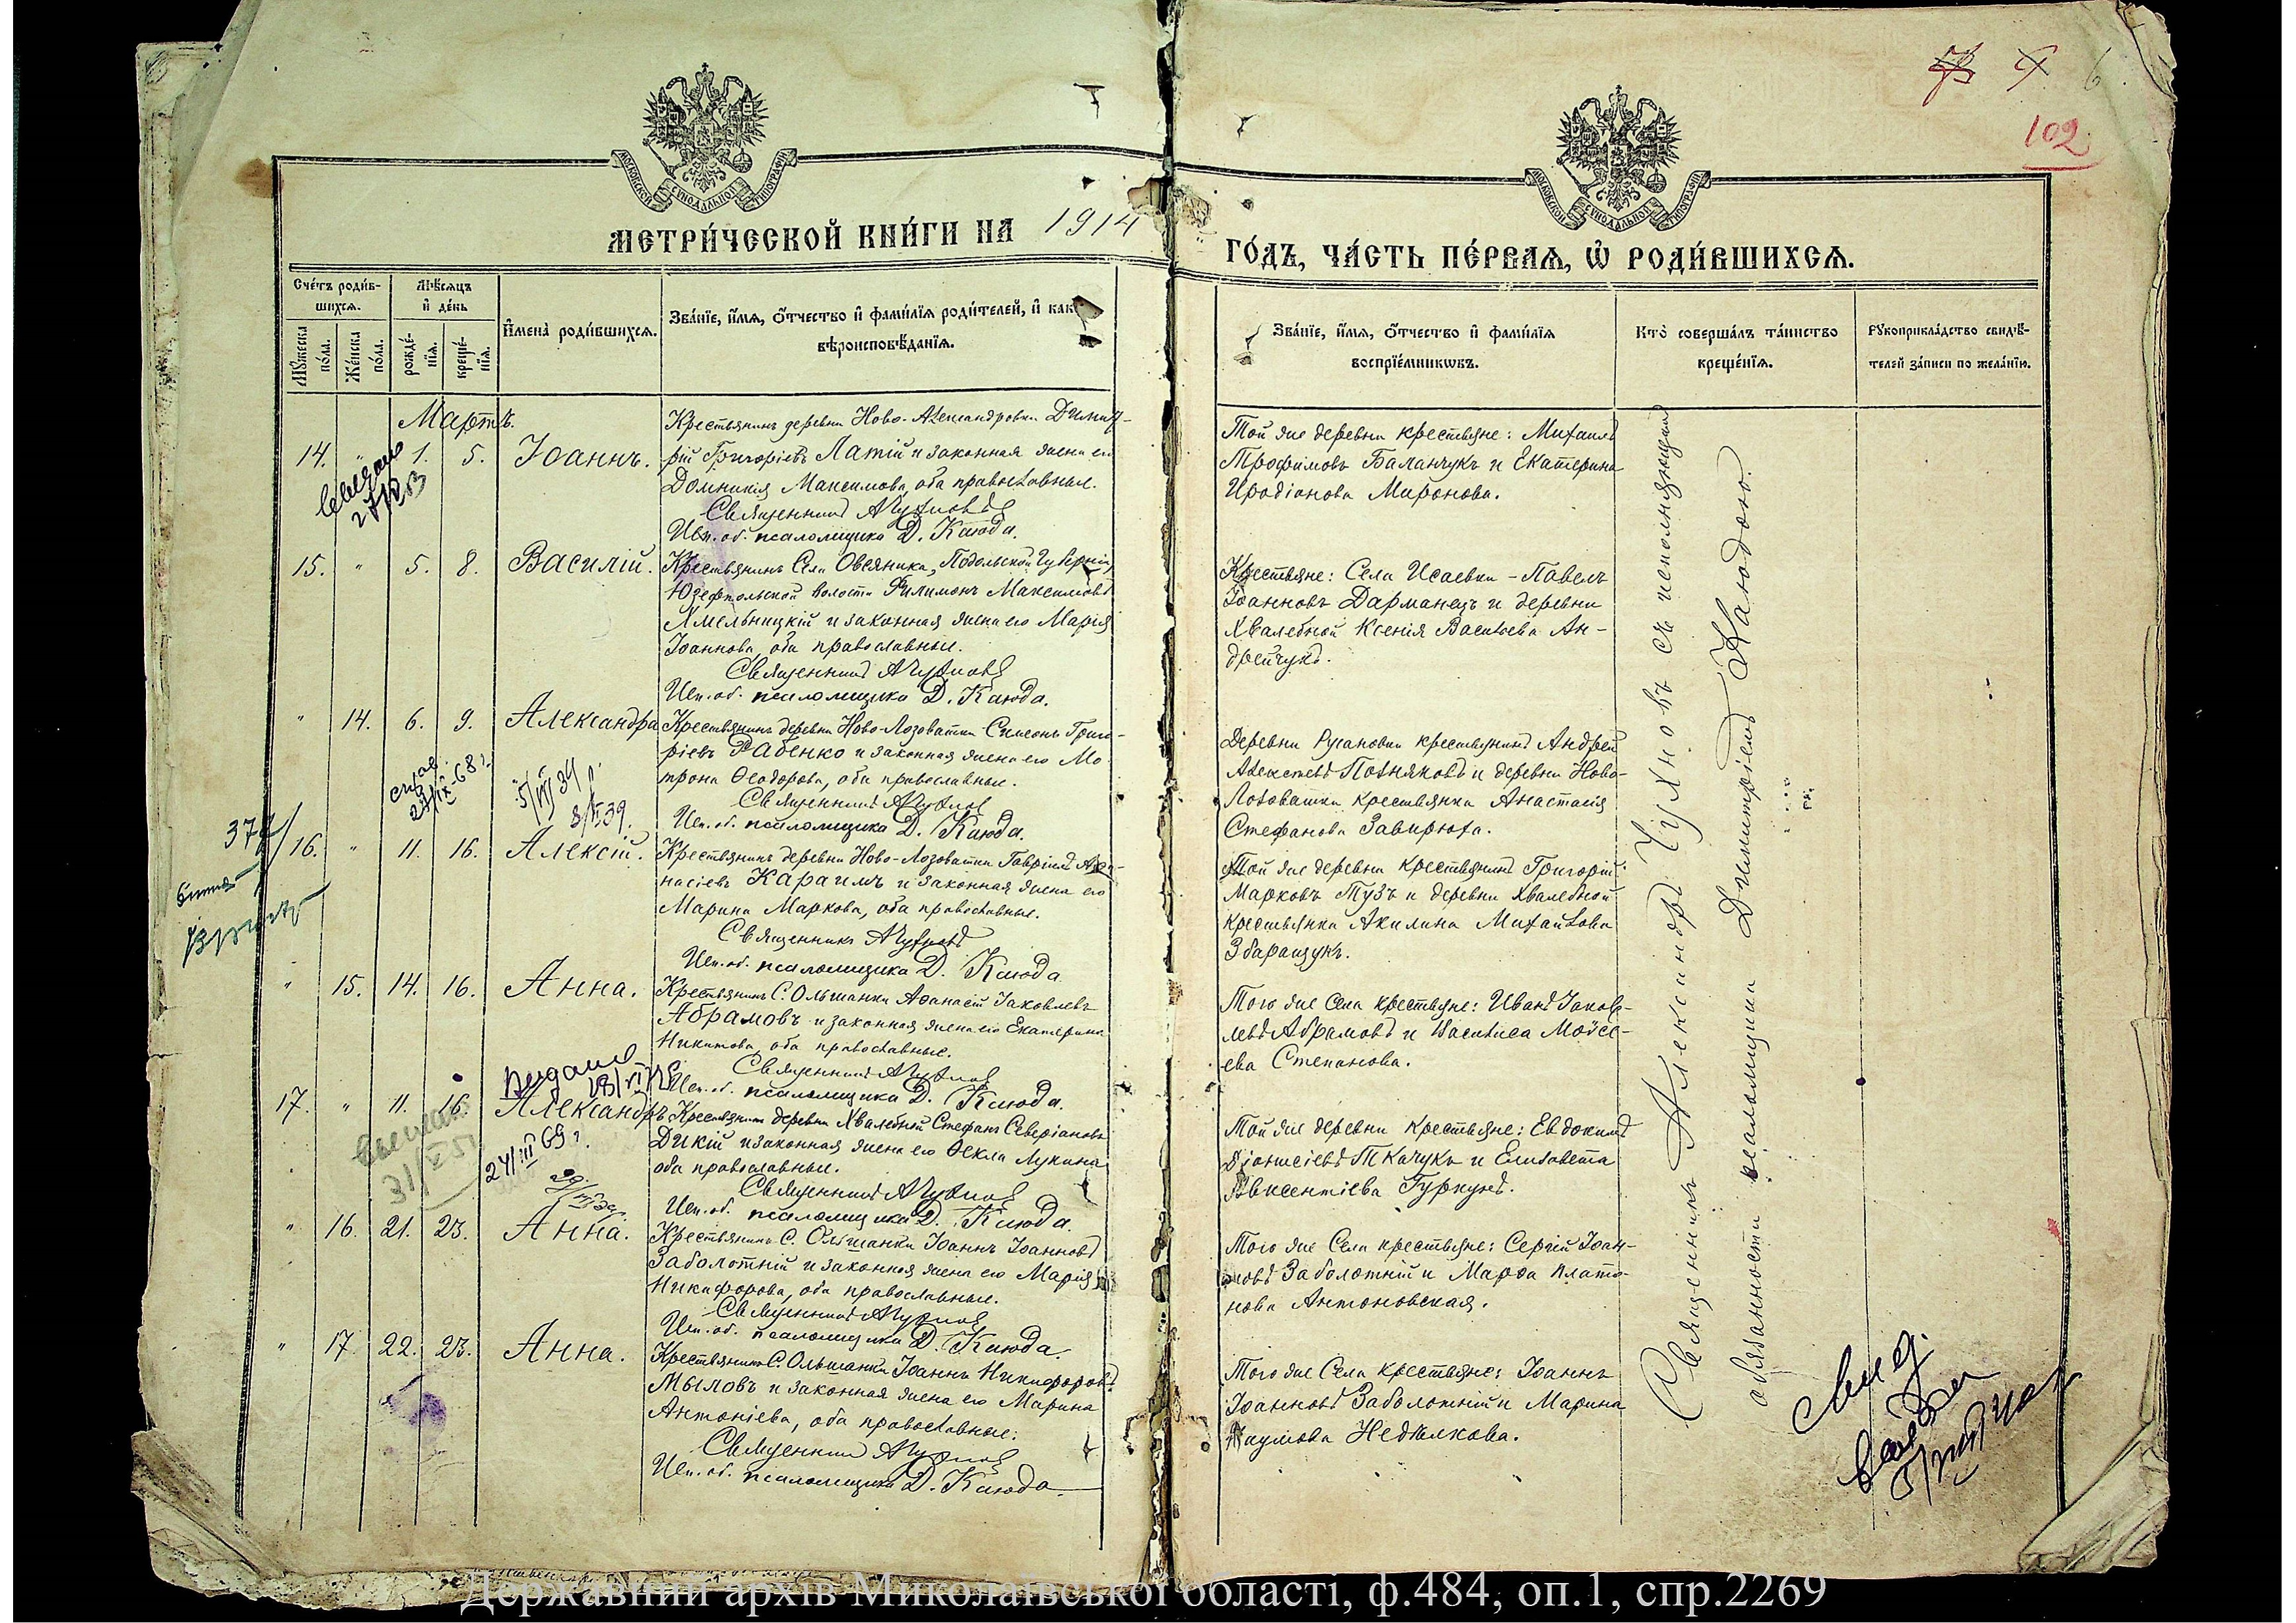 6
102
МОСКОВСКОЙ СѴНОДАЛЬНОЙ ТИПОГРАФІИ
МОСКОВСКОЙ СѴНОДАЛЬНОЙ ТИПОГРАФІИ
МЕТРИ́ЧЕСКОЙ КНИ́ГИ НА 1914
ГО́ДЪ, ЧА́СТЬ ПЕ́РВАѦ, Ѡ҆ РОДИ́ВШИХСѦ.
Сче́тъ роди́в-
шихсѧ.
Мꙋ́жеска по́ла.
Же́нска по́ла.
Мѣ́сѧцъ
и҆ де́нь
рожде́-
нїѧ.
креще́-
нїѧ.
И҆мена̀ роди́вшихсѧ.
Зва́нїе, и҆́мѧ, ѻ҆́тчество и҆ фами́лїѧ роди́телей, и҆ как
вѣроисповѣ́данїѧ.
Зва́нїе, и҆́мѧ, ѻ҆́тчество и҆ фами́лїѧ
воспрїе́мниковъ.
Кто̀ соверша́лъ та́инство
креще́нїѧ.
Рꙋкоприкла́дство свидѣ́-
телей за́писи по жела́нїю.
Мартъ.
14. " 1. 5. Іоаннъ.
Крестьянинъ деревни Ново-Александровки Димит-
рій Григоріевъ Латій и законная жена его
Домникия Максимова, оба православные.
Священникъ А Чухновъ
Исп. об. псаломщика Д. Каюда.
Той же деревни крестьяне: Михаилъ
Трофимовъ Баланчукъ и Екатерина
Иродіонова Миронова.
15. " 5. 8. Василій.
Крестьянинъ Села Овсяника, Подольской Губерніи,
Юзефпольской волости Филимонъ Максимовъ
Хмельницкій и законная жена его Марія
Іоаннова, оба православные.
Священникъ А Чухновъ
Исп. об. псаломщика Д. Каюда.
Крестьяне: Села Исаевки - Павелъ
Іоанновъ Дарманецъ и деревни
Хвалебной Ксенія Васильева Ан-
дрейчукъ.
" 14. 6. 9. Александра
Крестьянинъ деревни Ново-Лозоватки Симеонъ Григо-
ріевъ Рабенко и законная жена его Мо-
трона Ѳеодорова, оба православные.
Священникъ А Чухновъ
Исп. об. псаломщика Д. Каюда.
Деревни Русановки крестьянинъ Андрей
Алексеевъ Позняковъ и деревни Ново-
Лозоватки крестьянка Анастасія
Стефанова Завирюха.
16. " 11. 16. Алексій.
Крестьянинъ деревни Ново-Лозоватки Гавріилъ Аѳа-
насіевъ Караимъ и законная жена его
Марина Маркова, оба православные.
Священникъ А Чухновъ
Исп. об. псаломщика Д. Каюда
Той же деревни крестьянинъ Григорій
Марковъ Тузъ и деревни Хвалебной
крестьянка Акилина Михайлова
Збаращукъ.
" 15. 14. 16. Анна.
Крестьянинъ С. Ольшанки Аѳанасій Іаковлевъ
Абрамовъ и законная жена его Екатерина
Никитова, оба православные.
Священникъ А Чухновъ
Исп. об. псаломщика Д. Каюда.
Того же Села крестьяне: Иванъ Іаков-
левъ Абрамовъ и Василиса Моѵсе-
ева Степанова.
17. " 11. 16. Александръ
Крестьянинъ деревни Хвалебной Стефанъ Северіановъ
Дикій и законная жена его Ѳекла Лукина
оба православные.
Священникъ А Чухновъ
Исп. об. псаломщика Д. Каюда.
Той же деревни крестьяне: Евдокимъ
Діонисіевъ Ткачукъ и Елисавета
Авксентіева Гуркунъ.
24/III 69 г.
" 16. 21. 23. Анна.
Крестьянинъ С. Ольшанки Іоаннъ Іоанновъ
Заболотній и законная жена его Марія
Никифорова, оба православные.
Священникъ А Чухновъ
Исп. об. псаломщика Д. Каюда.
Того же Села крестьяне: Сергій Іоан-
новъ Заболотній и Марѳа Плато-
нова Антоновская.
" 17. 22. 23. Анна.
Крестьянинъ С. Ольшанки Іоаннъ Никифоровъ
Мыловъ и законная жена его Марина
Антоніева, оба православные.
Священникъ А Чухновъ
Исп. об. псаломщика Д. Каюда
Того же Села крестьяне: Іоаннъ
Іоанновъ Заболотній и Марина
Наумова Недѣлкова.
Священникъ Александръ Чухновъ съ исполняющимъ
обязанности псаломщика Димитріемъ Каюдою.
Державний архів Миколаївської області, ф.484, оп.1, спр.2269